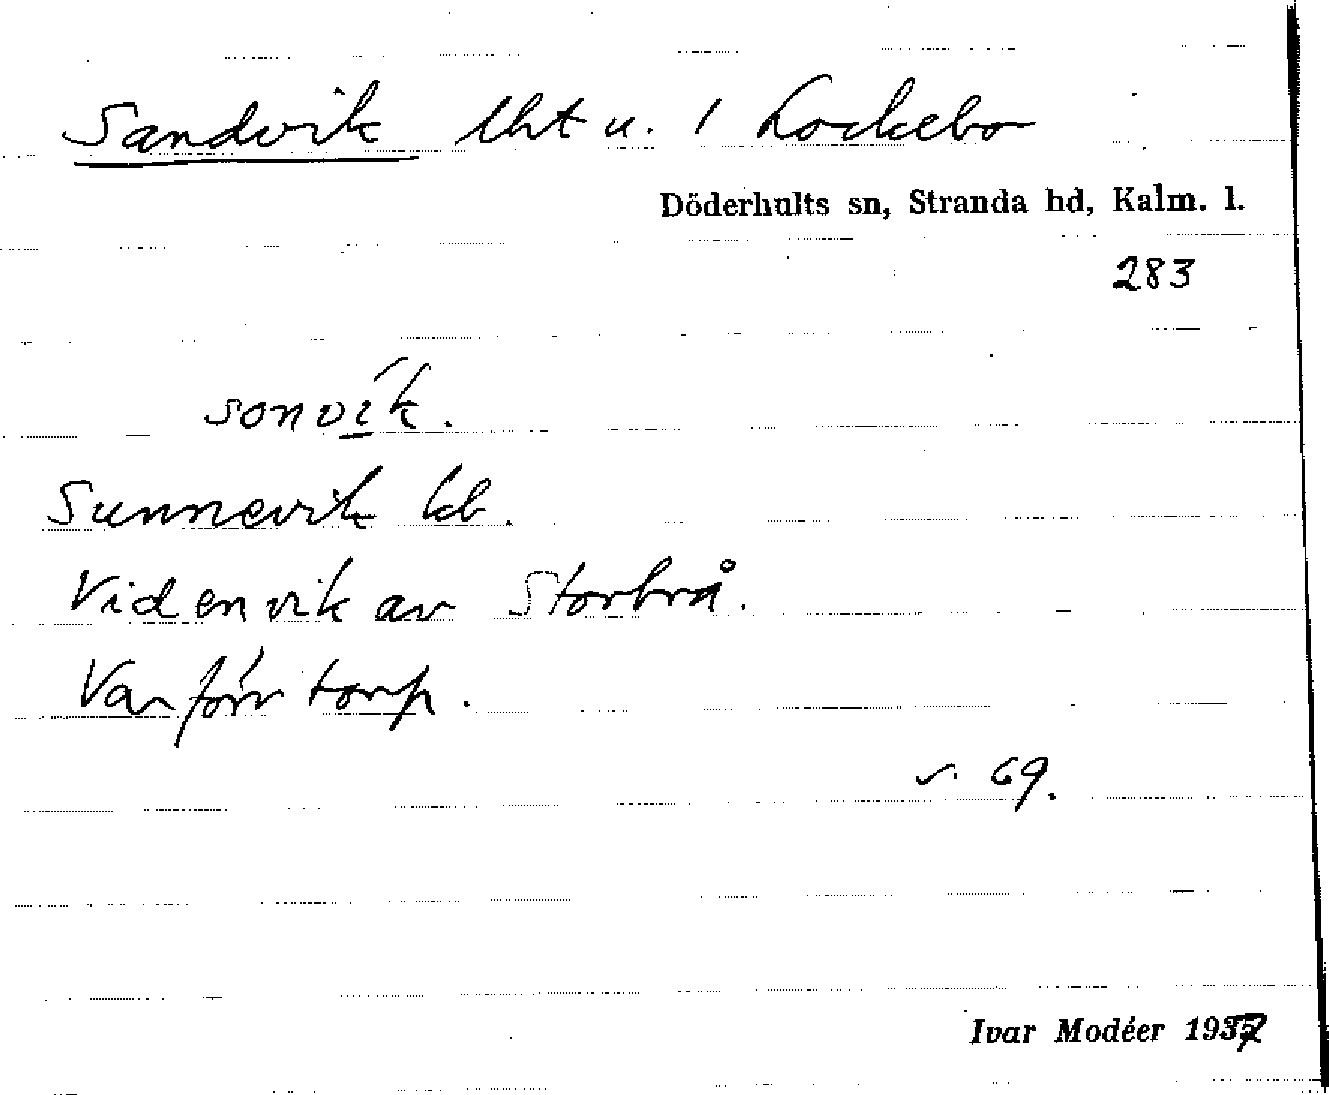 Sandvik lht u. 1 Lockebo
Döderhults sn, Stranda hd, Kalm. l.
283
sonvík.
Sunnevik kb.
Vid en vik av Storbrå.
Var förr torp.
s. 69.
Ivar Modéer 1937